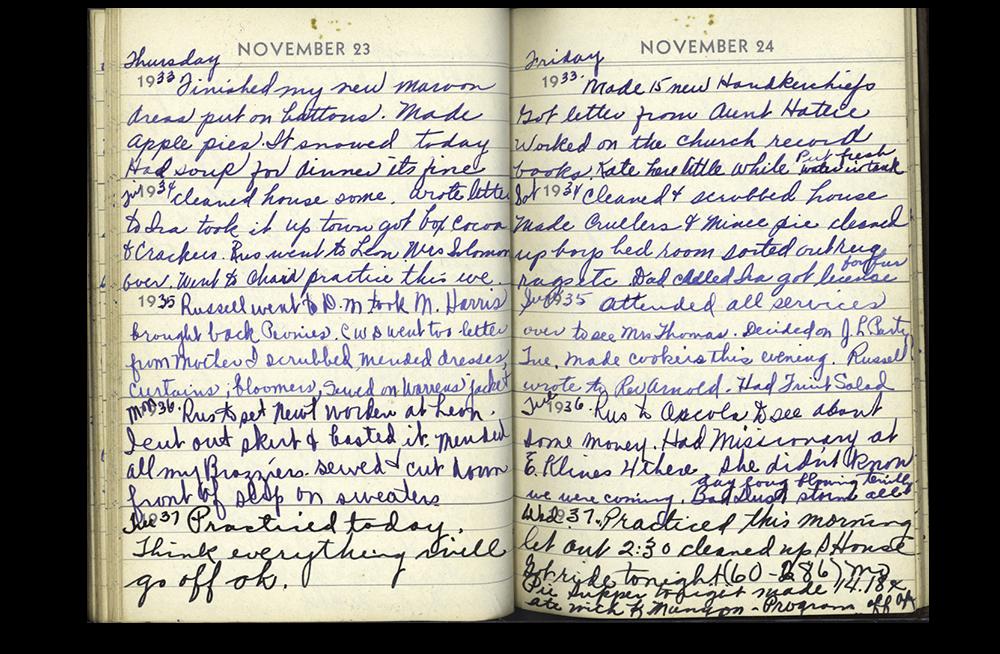 Thursday
NOVEMBER 23
1933 Finished my new maroon
dress put on buttons. Made
Apple pies. It snowed today
Had soup for dinner its fine
1934 cleaned house some. Wrote letter
to Ira took it up town got box cocoa
& Crackers. Rus went to Leon Mrs Solomon
over. Went to Choir practice this eve.
1935 Russell went to D.M took M. Harris
brought back Peonies. C W S went too letter
from Mother I scrubbed, mended dresses,
curtains, bloomers, Sewed on Warrens' jacket
Mon 36. Rus to set Newt Worden at Leon.
I cut out skirt & basted it. Mended
all my Brazziers. sewed & cut down
front of slip on sweaters
Tue 37 Practiced today.
Think everything will
go off ok.
Friday
NOVEMBER 24
1933. Made 15 new Handkerchiefs
Got letter from Aunt Hattie
Worked on the church record
books, Kate here little while Put fresh
water in tank
Sat 1934 Cleaned & scrubbed house
Made Crullers & Mince pie cleaned
up boys bed room sorted out rug
rags etc. Dad called Ira got license
for fur
1935 attended all services
over to see Mrs Thomas. Decided on J. L. Party
Tue. made cookies this evening. Russell
wrote to Rev Arnold. Had Fruit Salad
Tue 1936. Rus to Osceola to see about
some money. Had Missionary at
E. Klines 4 there she didn't know
we were coming. Bad Dust storm all
day long blowing terribly
Wed. 37. Practiced this morning
let out 2:30 cleaned up S House
Got ride tonight (60 - 86)
Pie Supper tonight made 14.18
ate with Mungon - Program off ok